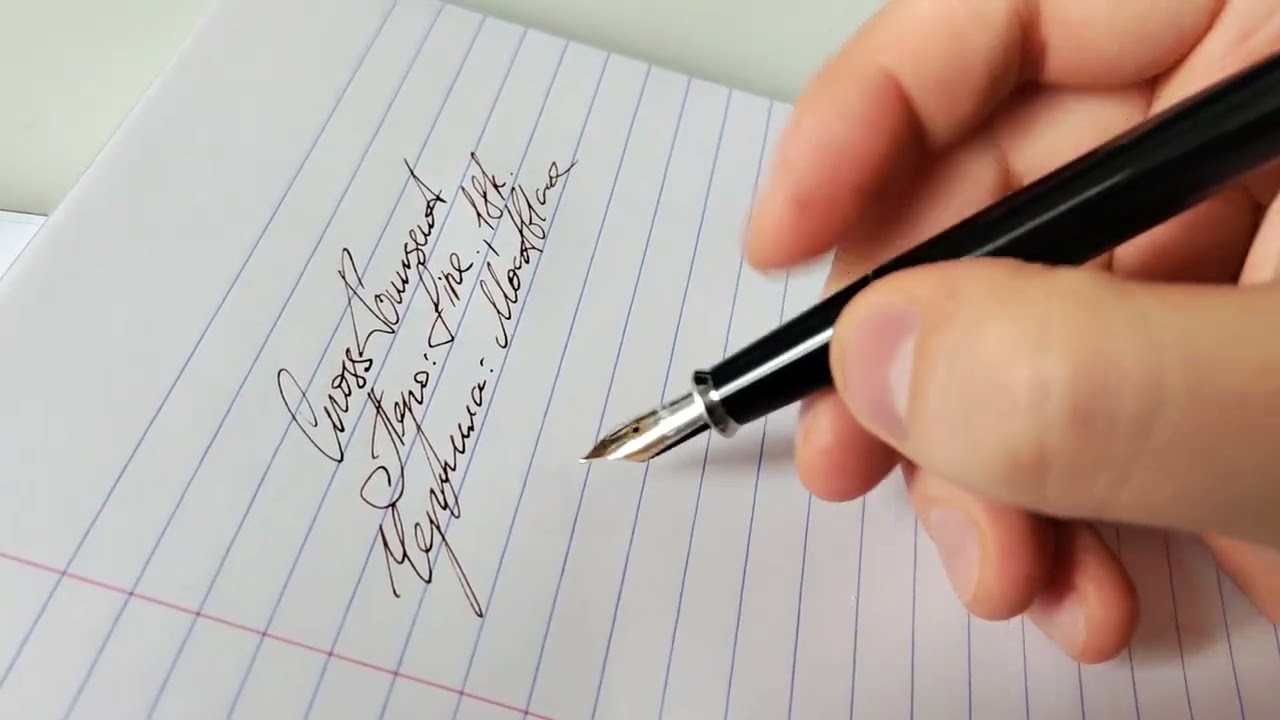 Cross Townsend
Перо: Fine, 18k.
Чернила: